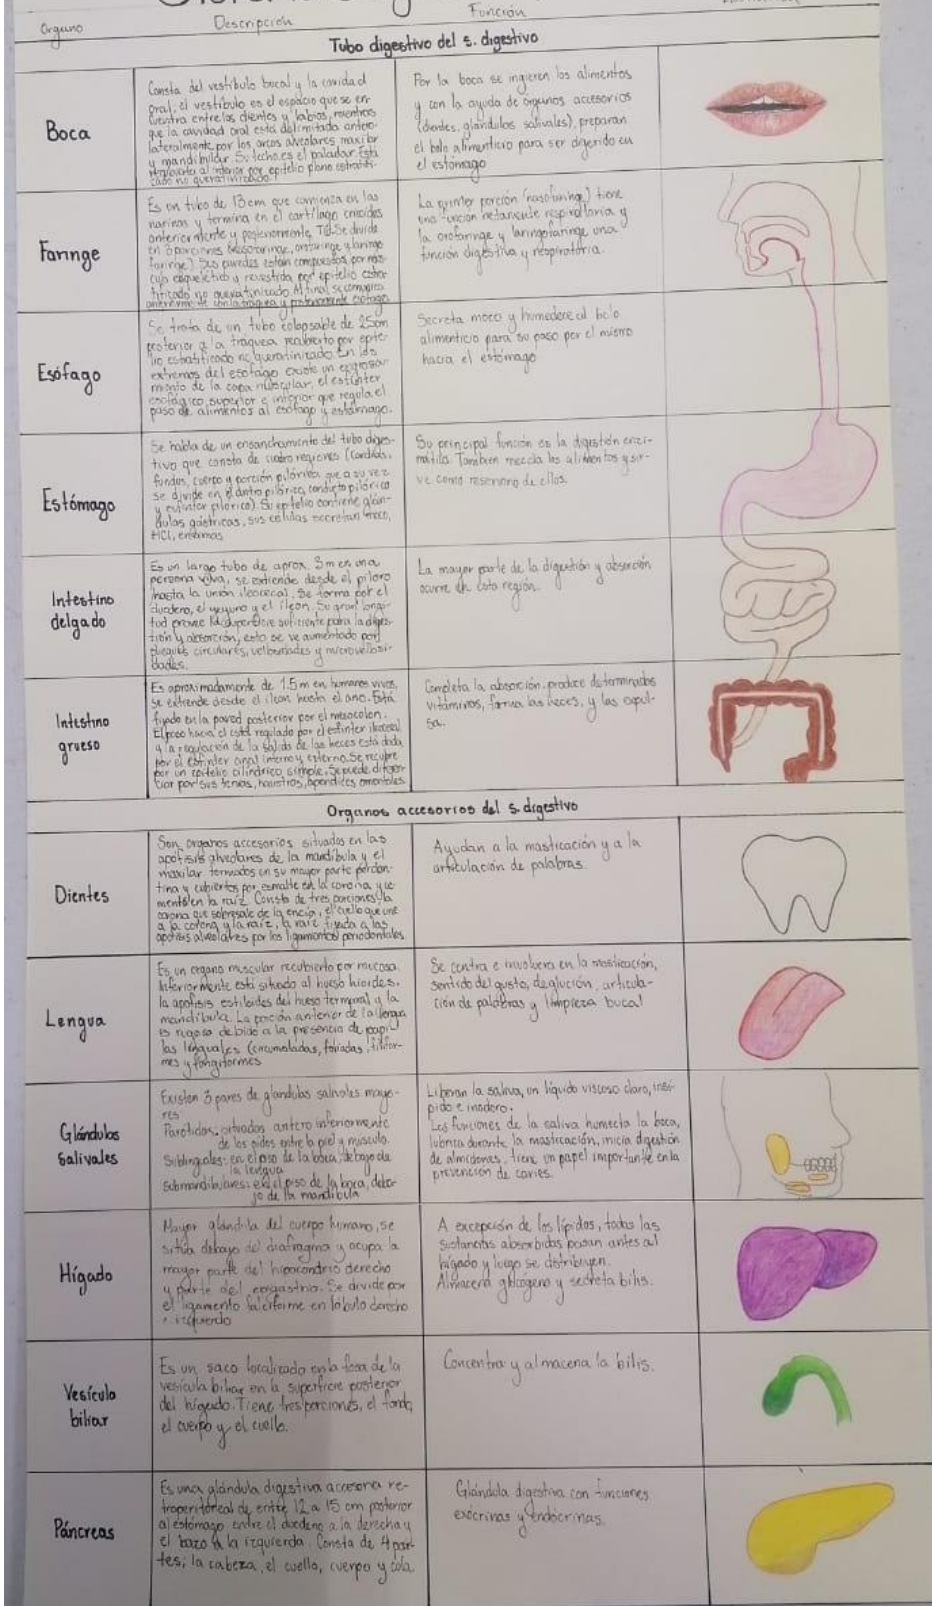 Organo
Descripción
Función
Tubo digestivo del s. digestivo
Boca
Consta del vestíbulo bucal y la cavidad
oral, el vestíbulo es el espacio que se en
cuentra entre los dientes y labios, mientras
que la cavidad oral está delimitada antero
lateralmente por los arcos alveolares maxilar
y mandibular. Su techo es el paladar. Está
recubierta al interior por epitelio plano estratifi-
cado no queratinizado
Por la boca se ingieren los alimentos
y con la ayuda de organos accesorios
(dientes, glándulas salivales), preparan
el bolo alimenticio para ser digerido en
el estómago
Faringe
Es un tubo de 13cm que comienza en las
narinas y termina en el cartílago cricoides
anteriormente y posteriormente,
en 3 porciones (nasofaringe, orofaringe y laringo
faringe) Sus paredes están compuestas por mús-
culo esquelético y revestida por epitelio estra
tificado no queratinizado. Al final se comunica
anteriormente con la tráquea y posteriormente esófago
La primer porción (nasofaringe) tiene
una función netamente respiratoria y
la orofaringe y laringofaringe una
función digestiva y respiratoria.
Esófago
Se trata de un tubo colapsable de 25cm
posterior a la traquea recubierto por epite-
lio estratificado no queratinizado. En los
extremos del esofago existe un engrosa
miento de la capa muscular, el esfínter
esofágico, superior e inferior que regula el
paso de alimentos al esófago y estómago.
Secreta moco y humedece al bolo
alimenticio para su paso por el mismo
hacia el estómago
Estómago
Se habla de un ensanchamiento del tubo diges-
tivo que consta de cuatro regiones (Cardias,
fundus, cuerpo y porción pilórica que a su vez
se divide en el antro pilórico, conducto pilórico
y esfínter pilórico). Su epitelio contiene glán-
dulas gástricas, sus células secretan moco,
HCl, enzimas
Su principal función es la digestión enzi-
mática. También mezcla los alimentos y sir-
ve como reservorio de ellos.
Intestino
delgado
Es un largo tubo de aprox. 3m en una
persona viva, se extiende desde el píloro
hasta la unión ileocecal. Se forma por el
duodeno, el yeyuno y el íleon. Su gran longi-
tud provee superficie suficiente para la diges-
tión y absorción, esto se ve aumentado por
pliegues circulares, vellosidades y microvellosi-
dades.
La mayor parte de la digestión y absorción
ocurre en esta región.
Intestino
grueso
Es aproximadamente de 1.5m en humanos vivos,
se extiende desde el íleon hasta el ano. Está
fijado en la pared posterior por el mesocolon.
El paso hacia el está regulado por el esfínter ileocecal
y la regulación de la salida de las heces está dada
por el esfínter anal interno y externo. Se recubre
por un epitelio cilíndrico simple. Se puede diferen
ciar por sus tenias, haustras, apendices omentales
Completa la absorción, produce determinadas
vitaminas, forma las heces, y las expul-
sa.
Organos accesorios del s. digestivo
Dientes
Son organos accesorios situados en las
apófisis alveolares de la mandíbula y el
maxilar formados en su mayor parte por den-
tina y cubiertos por esmalte en la corona y ce
mento en la raíz. Consta de tres porciones: la
corona que sobresale de la encía, el cuello que une
a la corona y la raíz, la raíz fijada a las
apófisis alveolares por los ligamentos periodontales
Ayudan a la masticación y a la
articulación de palabras.
Lengua
Es un organo muscular recubierto por mucosa.
Inferiormente está situado al hueso hioides,
la apófisis estiloides del hueso temporal y la
mandíbula. La porción anterior de la lengua
es rugosa debido a la presencia de papi
las linguales (circunvaladas, foliadas, filifor-
mes y fungiformes
Se centra e involucra en la masticación,
sentido del gusto, deglución, articula-
ción de palabras y limpieza bucal
Glándulas
Salivales
Existen 3 pares de glandulas salivales mayo-
res
Parótidas: situadas antero inferiormente
de los oidos entre la piel y músculo.
Sublinguales: en el piso de la boca, debajo de
la lengua
Submandibulares: en el piso de la boca, deba-
jo de la mandíbula
Liberan la saliva, un líquido viscoso claro, insí-
pido e inodoro.
Las funciones de la saliva humecta la boca,
lubrica durante la masticación, inicia digestión
de almidones, tiene un papel importante en la
prevención de caries.
Hígado
Mayor glándula del cuerpo humano, se
sitúa debajo del diafragma y ocupa la
mayor parte del hipocondrio derecho
y parte del epigastrio. Se divide por
el ligamento falciforme en lóbulo derecho
e izquierdo
A excepción de los lípidos, todas las
sustancias absorbidas pasan antes al
hígado y luego se distribuyen.
Almacena glucógeno y secreta bilis.
Vesícula
biliar
Es un saco localizado en la fosa de la
vesícula biliar en la superficie posterior
del hígado. Tiene tres porciones, el fondo,
el cuerpo y el cuello.
Concentra y almacena la bilis.
Páncreas
Es una glándula digestiva accesoria re-
troperitoneal de entre 12 a 15 cm posterior
al estómago entre el duodeno a la derecha y
el bazo a la izquierda. Consta de 4 par-
tes; la cabeza, el cuello, cuerpo y cola.
Glándula digestiva con funciones
exócrinas y endócrinas.